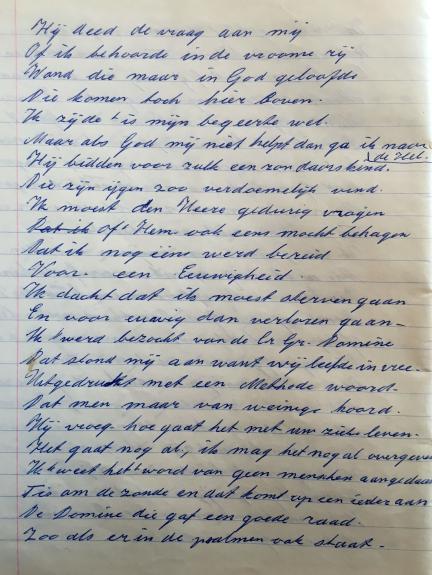 Hij deed de vraag aan mij
Of ik behoorde in de vroome rij
Wand die maar in God geloofde
Die komen toch hier boven.
Ik zijde 't is mijn begeerte wel.
Maar als God mij niet helpt dan ga ik naar
de Hel.
Hij bidden voor zulk een zondaars kind.
Die zijn ijgen zoo verdoemelijk vind.
Ik moest den Heere gedurig vragen
Dat ik Of Hem ook eens mocht behagen
Dat ik nog eens werd bereid
Voor een Eeuwigheid.
Ik dacht dat ik moest sterven gaan
En voor eeuwig dan verloren gaan-
Ik werd bezocht van de Cr Gr. Domine
Dat stond mij aan want wij leefde in vree.
Uitgedrukt met een woord.
Dat men maar van weinige hoord.
Hij vroeg hoe gaat het met uw ziele leven.
Het gaat nog al, ik mag het nog al overgeven
Ik weet het word van geen menschen aangedaan
T is om de zonde en dat komt op een ieder aan
De Domine die gaf een goede raad.
Zoo als er in de psalmen ook staat.